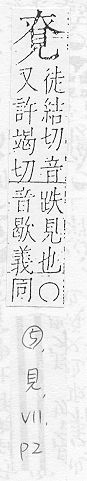 徒結切音昳見也〇
又許竭切音歇義同
⑤,
見,
VII,
P2